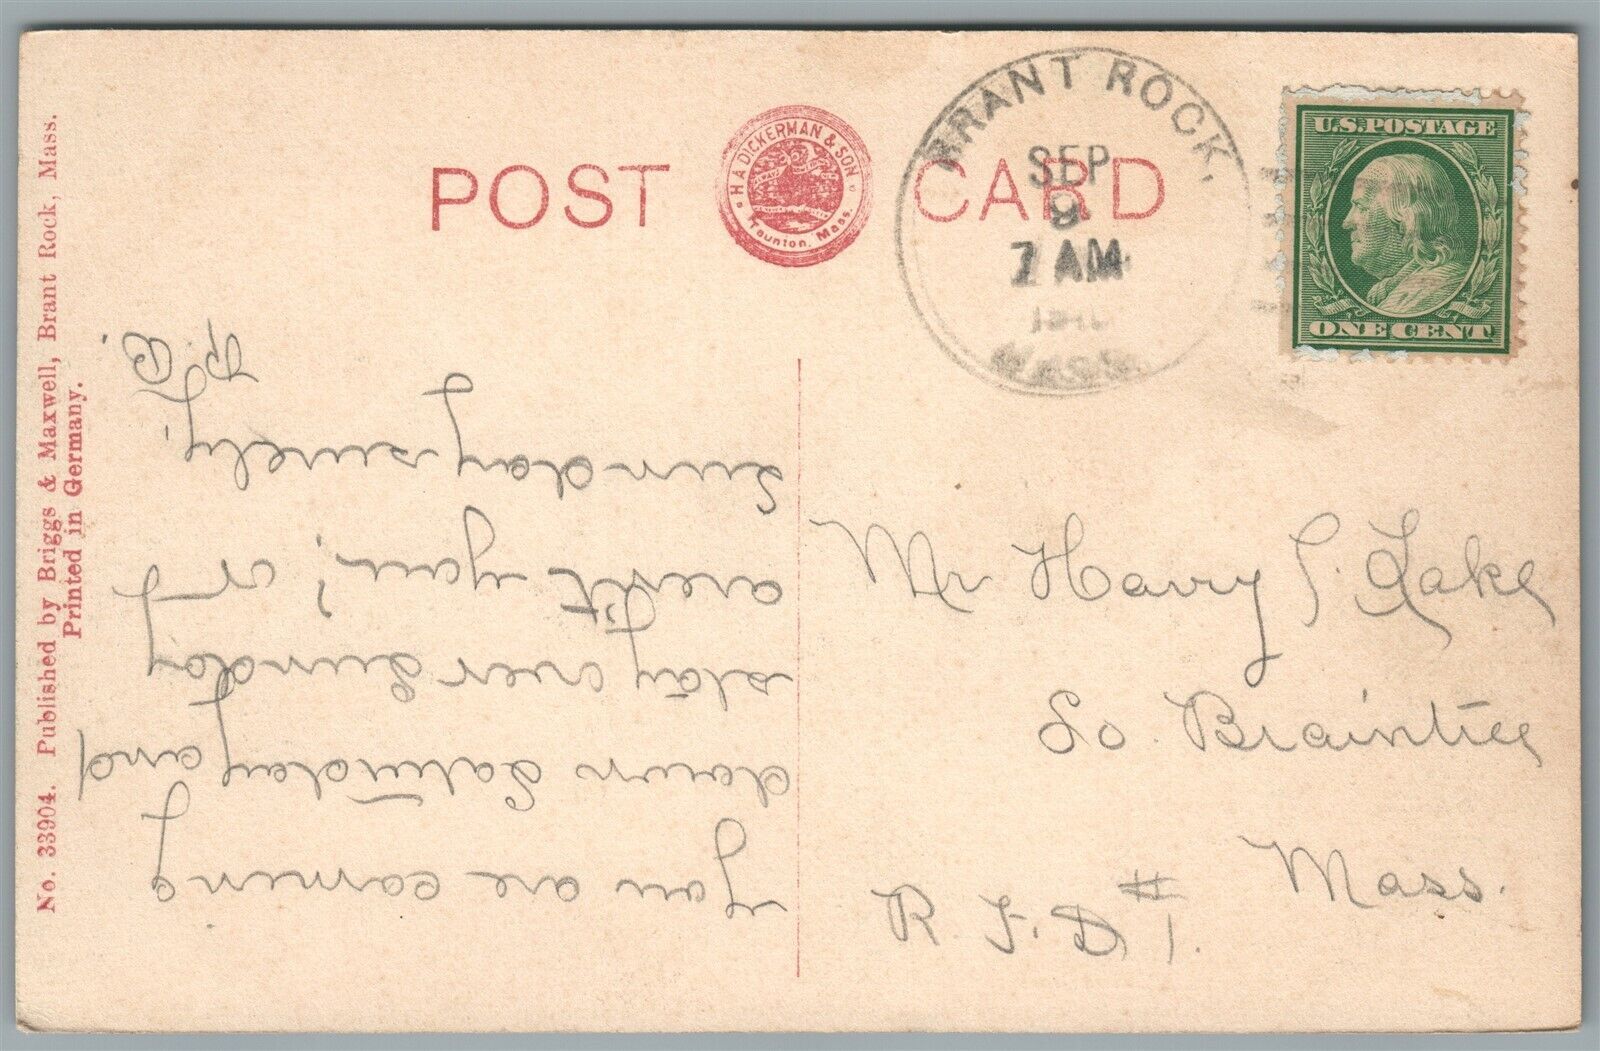 POST CARD
H.A. DICKERMAN & SON
Taunton, Mass.
BRANT ROCK,
SEP
9
7 AM
MASS.
U.S. POSTAGE
ONE CENT
Mr Harry S. Lake
So. Braintree
Mass.
R.F.D. #1.
You are coming
down Saturday and
stay over Sunday
aren't you? or
Sunday surely.
No. 33904. Published by Briggs & Maxwell, Brant Rock, Mass.
Printed in Germany.